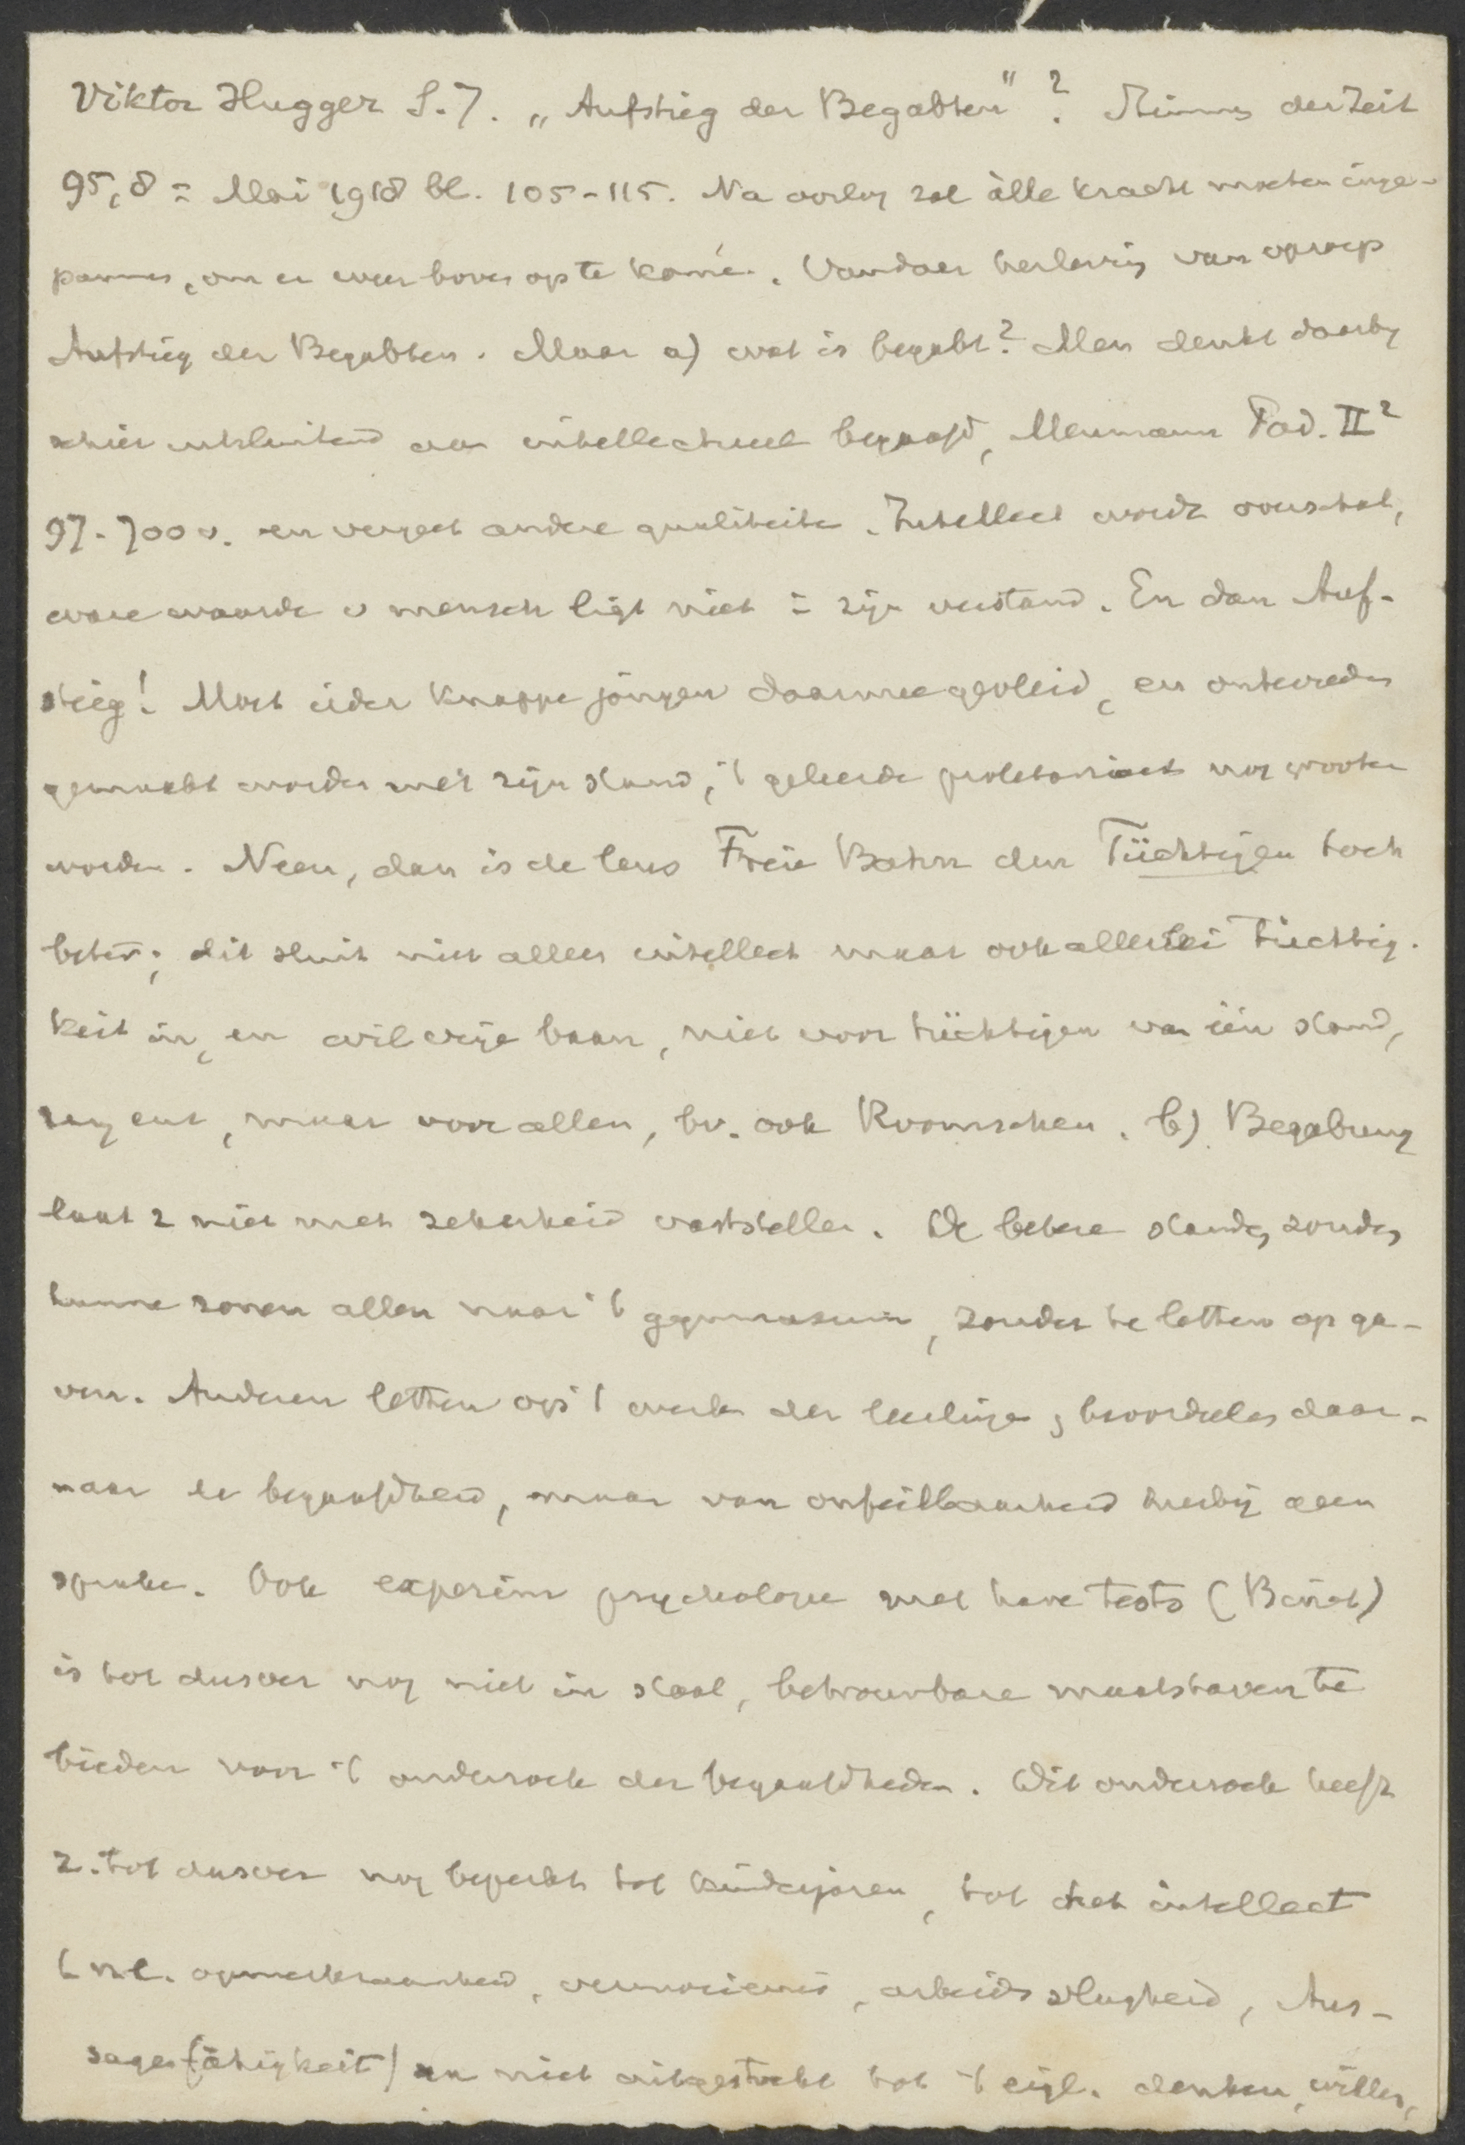 Viktor Hugger S.J. „Aufstieg der Begabten"? Stimmen der Zeit
95,8 = Mai 1918 bl. 105-115. Na oorlog zal àlle kracht moeten inge-
pannes, om er weer boven op te komē. Vandaar herleving van oproep
Aufstieg der Begabten. Maar a) wat is begabt? Men denkt daarbij
schier uitsluitend aan intellectueel begaafd, Meumann Päd. II²
97-700 v. en vergeet andere qualiteiten. Intellect wordt overschat,
ware waarde v mensch ligt niet in zijn verstand. En dan Auf-
stieg! Moet ieder knappe jongen daarmee gevleid, en ontevreden
gemaakt worden met zijn stand, 't geleerde proletariaat nog grooter
worden. Neen, dan is de leus Freie Bahn den Tüchtigen toch
beter; dit sluit niet alleen intellect maar ook allerlei Tüchtig-
keit in, en wil vrije baan, niet voor tüchtigen van één stand,
maar voor allen, bv. ook Roomschen. b) Begabung
laat z niet met zekerheid vaststellen. De betere standen zonden
hunne zonen allen naar 't gymnasium, zonder te letten op ga-
ven. Anderen letten op 't werk der leerlingen, beoordeelen daar-
naar de begaafdheid, maar van onfeilbaarheid hierbij geen
sprake. Ook experim psychologie met hare tests (Binet)
is tot dusver nog niet in staat, betrouwbare maatstaven te
bieden voor 't onderzoek der begaafdheden. Dit onderzoek heeft
z. tot dusver nog beperkt tot kinderjaren, tot het intellect
( nl. opmerkzaamheid, arbeids vlugheid, Aus-
sagefähigkeit) en niet uitgestrekt tot 't eigl. denken, willen,